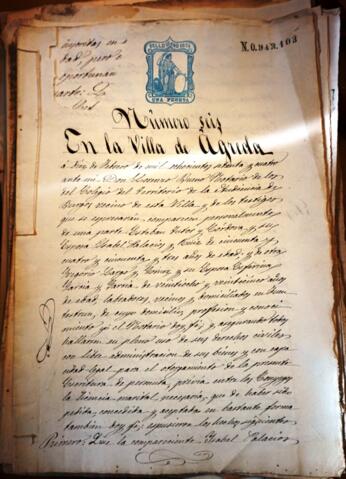 SELLO 11º 1874
UNA PESETA
N.0.949.403
Número seis
En la Villa de Agreda
á diez de Febrero de mil ochocientos setenta y cuatro
ante mi Don Lorenzo Bueno Notario de los
del Colegio del Territorio de la Audiencia de
Burgos vecino de esta Villa y de los testigos
que se espresarán, comparecen personalmente
de una parte Esteban y su
Esposa Isabel Palacios y Ruiz de cincuenta y
cuatro y cincuenta y tres años de edad; y de otra
Gregorio Largo y y su Esposa
García y García de veintiocho y veinticinco años
de edad, labradores, vecinos y domiciliados en
de cuyo domicilio, profesion y conoci-
miento yo el Notario doy fé; y asegurando todos
hallarse en pleno uso de sus derechos civiles
con libre administracion de sus bienes y con capa-
cidad legal para el otorgamiento de la presente
Escritura de permuta, prévia entre los Conyuges
la licencia marital necesaria, que de haber sido
pedida, concedida y aceptada en bastante forma
tambien doy fé; espusieron los hechos siguientes
Primero; Que la compareciente Isabel Palacios